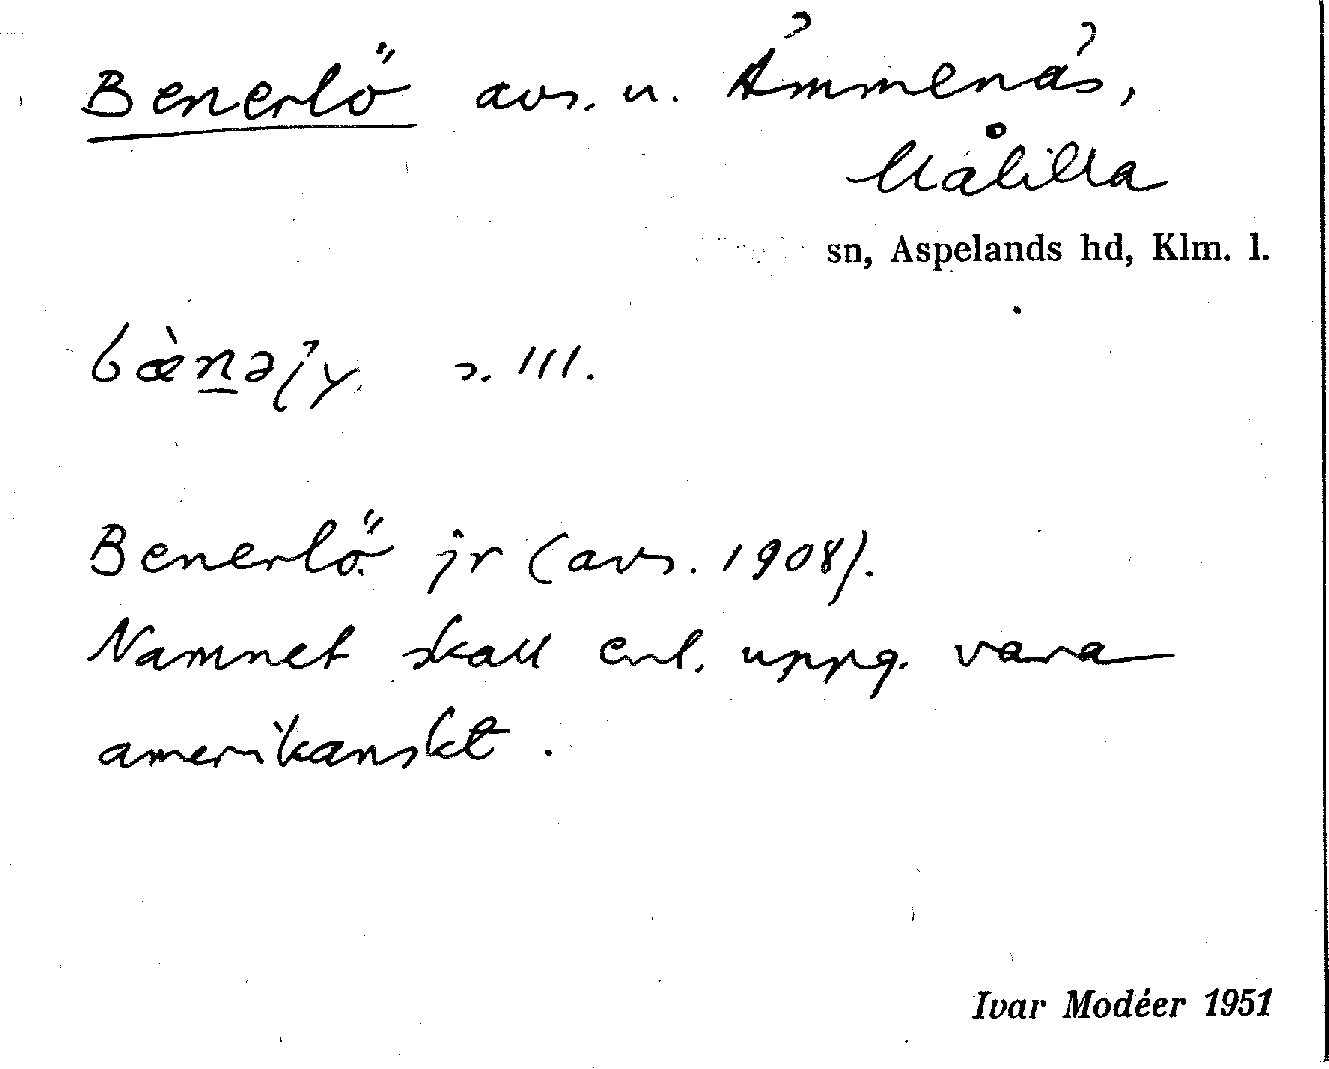 Benerlö avs. u. Åmmenäs,
Målilla
sn, Aspelands hd, Klm. l.
s. III.
Benerlö jr (avs. 1908).
Namnet skall enl. uppg. vara
amerikanskt.
Ivar Modéer 1951